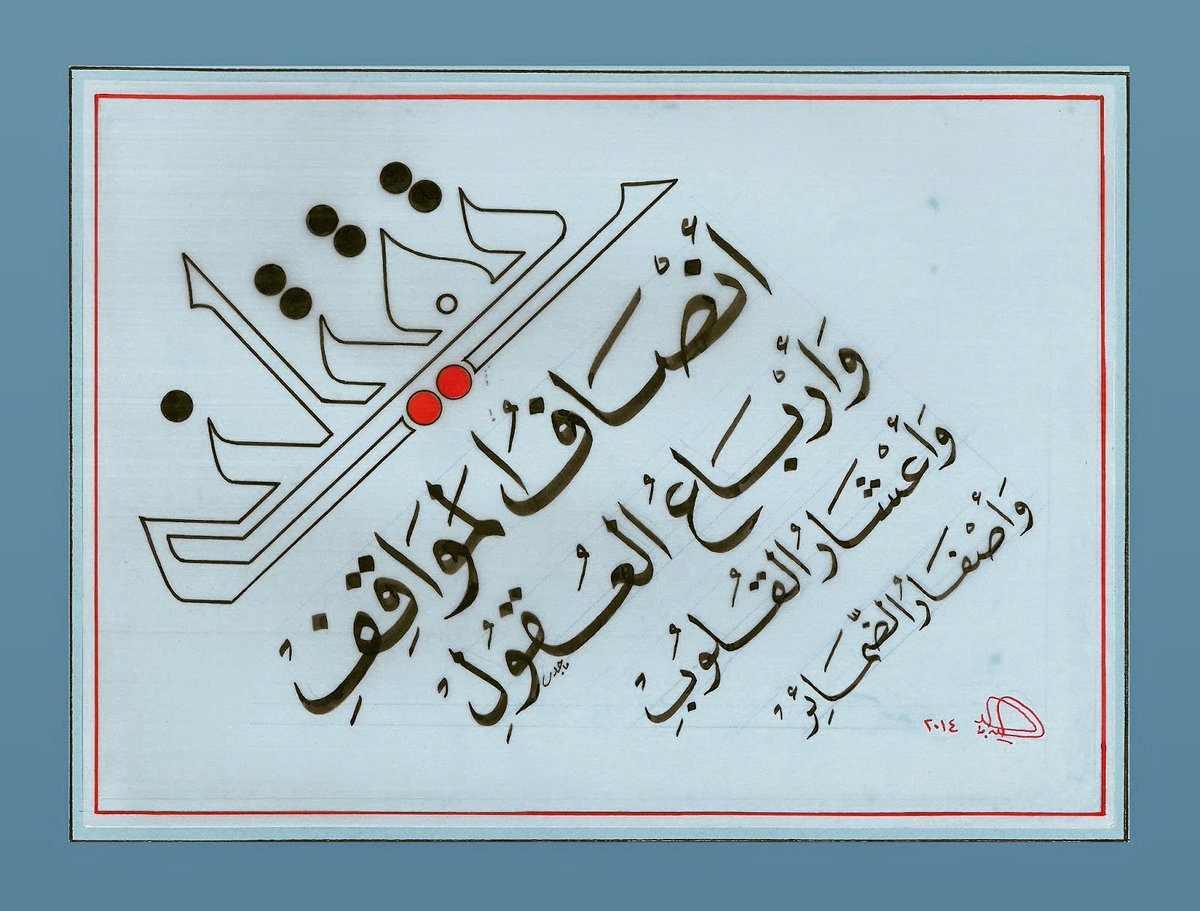 تقتلنا
أنْصَافُ المَوَاقِفِ
وَأرْبَاعُ العُقُولِ
وَأعْشَارُ القُلُوبِ
وَأصْفَارُ الضَّمَائِرِ
٢٠١٤